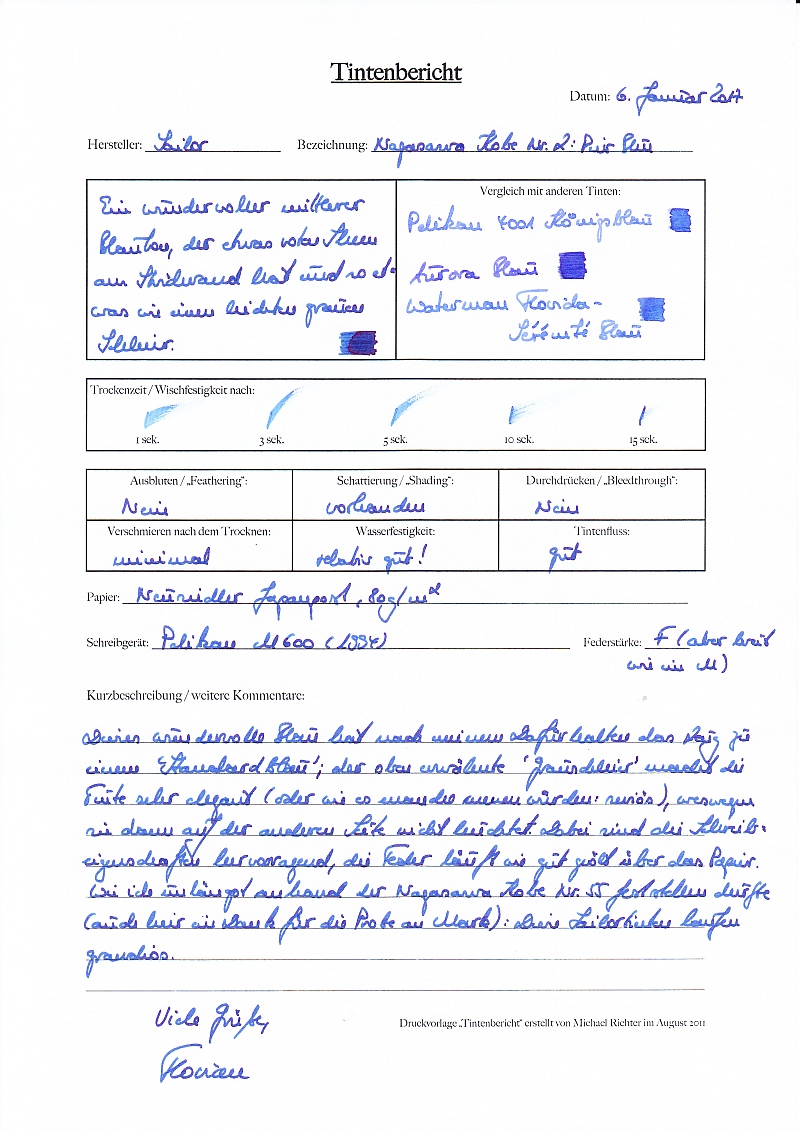 Tintenbericht
Datum: 6. Januar 2017
Hersteller: Sailor Bezeichnung: Nagasawa Kobe Nr. 2: Pier Blau
Ein wundervoller mittlerer
Blauton, der etwas roten Sheen
am Schriftrand hat und so et-
was wie einen leichten grauen
Schleier.
Vergleich mit anderen Tinten:
Pelikan 4001 Königsblau
Aurora Blau
Waterman Florida-
Sérénité Blau
Trockenzeit / Wischfestigkeit nach:
1 sek. 3 sek. 5 sek. 10 sek. 15 sek.
Ausbluten / „Feathering“: Schattierung / „Shading“: Durchdrücken / „Bleedthrough“:
Nein vorhanden Nein
Verschmieren nach dem Trocknen: Wasserfestigkeit: Tintenfluss:
minimal relativ gut! gut
Papier: Neusiedler Japanpost, 80g/m²
Schreibgerät: Pelikan M600 (1994) Federstärke: F (aber breit
wie ein M)
Kurzbeschreibung / weitere Kommentare:
Dieses wundervolle Blau hat nach meinem Dafürhalten das Zeug zu
einem 'Standardblau'; der oben erwähnte 'Grauschleier' macht die
Tinte sehr elegant (oder wie es manche nennen würden: seriös), weswegen
sie dann auf der anderen Seite nicht leuchtet. Dabei sind die Schreib-
eigenschaften hervorragend, die Feder läuft wie gut geölt über das Papier.
Wie ich unlängst anhand der Nagasawa Kobe Nr. 55 feststellen durfte
(auch hier ein Dank für die Probe an Mark): Diese Sailortinten laufen
grandios.
Viele Grüße,
Florian
Druckvorlage „Tintenbericht“ erstellt von Michael Richter im August 2011